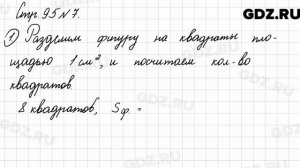 Стр 95 N 7.
GDZ.RU
1 Разделим фигуру на квадраты пло-
щадью 1 см², и посчитаем кол-во
квадратов.
8 квадратов, Sф =
GDZ.RU